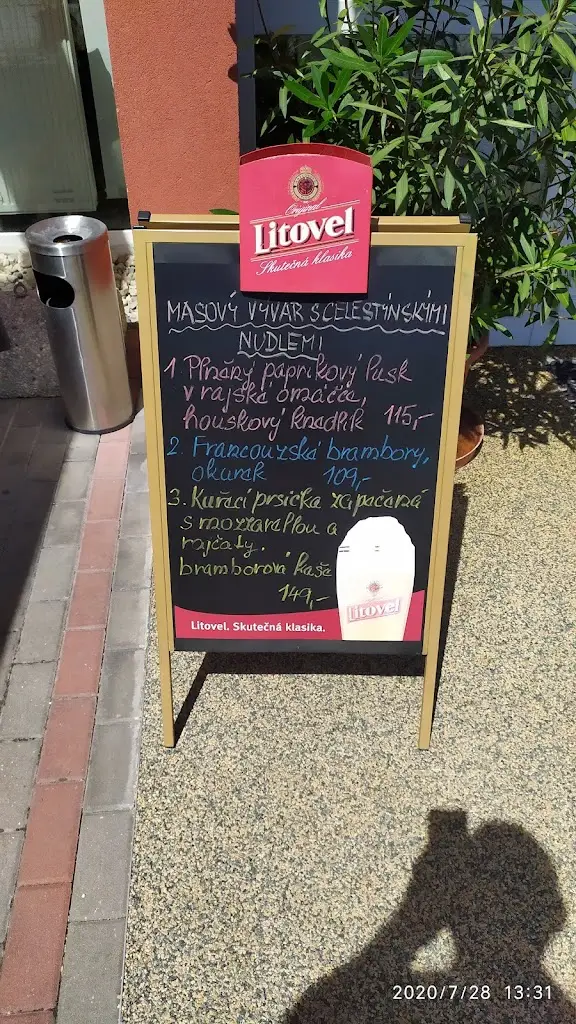 Original
Litovel
Skutečná klasika
MASOVÝ VÝVAR S CELESTÝNSKÝMI
NUDLEMI
1 Plněný paprikový lusk
v rajské omáčce,
houskový knedlík 115,-
2. Francouzské brambory,
okurek 109,-
3. Kuřecí prsíčka zapečená
s mozzarellou a
rajčaty.
bramborová kaše
149,-
Litovel
Litovel. Skutečná klasika.
2020/7/28 13:31